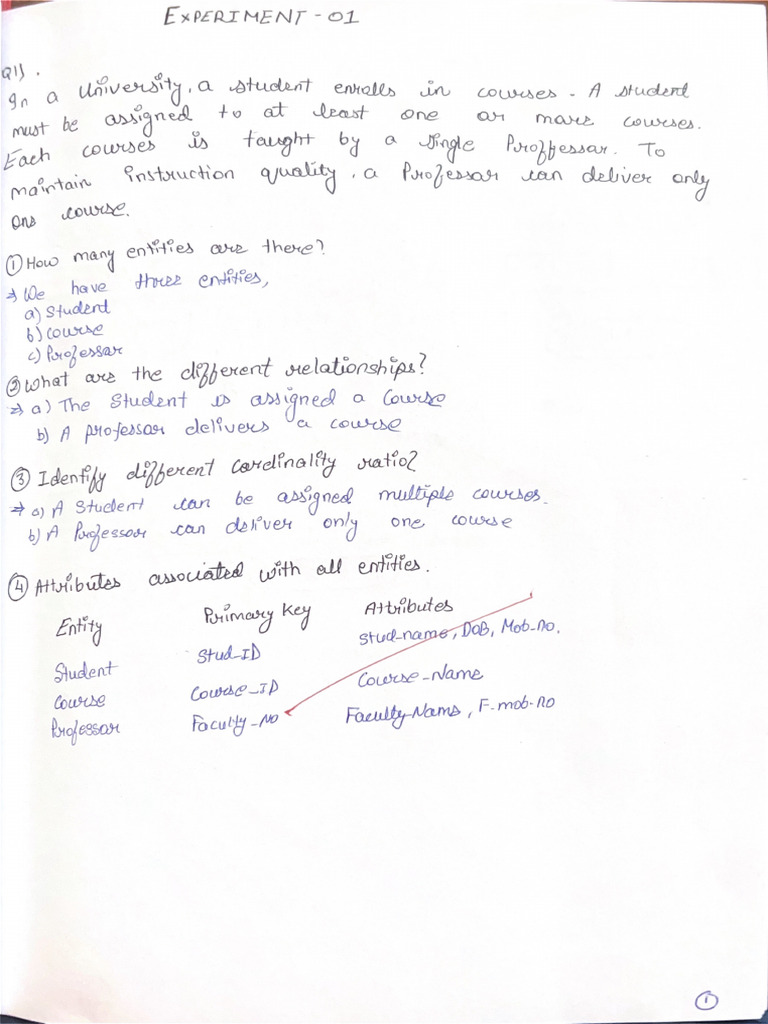 EXPERIMENT - 01
Q1).
In a University, a student enrolls in courses. A student
must be assigned to at least one or more courses.
Each courses is taught by a single Proffessor. To
maintain instruction quality, a Professor can deliver only
one course.
① How many entities are there?
⇒ We have three entities,
a) Student
b) Course
c) Professor
② What are the different relationships?
⇒ a) The Student is assigned a Course
b) A professor delivers a course
③ Identify different cardinality ratio?
⇒ a) A Student can be assigned multiple courses.
b) A Professor can deliver only one course
④ Attributes associated with all entities.
Entity Primary Key Attributes
Student Stud_ID Stud_name, DOB, Mob_no.
Course Course_ID Course_Name
Professor Faculty_No Faculty_Name, F_mob_no
①